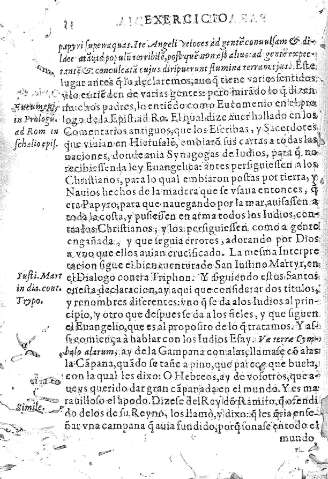 EXERCICIO
papyri super aquas. Ite Angeli veloces ad gentem convulsam & di-
ad populũ terribilẽ, post quẽ non est alius: ad gentẽ expec-
tantẽ & conculcatã cujus diripuerunt flumina terram ejus. Este
lugar antes q̃ lo declaremos, aunq̃ tiene varios sentidos
y lo entiẽden de varias gentes: pero mirado lo q̃ dizen
muchos padres, lo entiẽdo como Eutomenio en el pro
in Prologu.
logo de la Epist. ad Ro. El qual dize aver hallado en los
ad Rom in
Comentarios antiguos, que los Escribas, y Sacerdotes
scholio epist.
que vivian en Hierusalẽ, embiarõ sus cartas a todas las
naciones, donde avia Synagogas de Iudios, para q̃ no
recibiessen la ley Evangelica: antes persiguiessen a los
Christianos, para lo qual embiaron postas por tierra, y
Navios hechos de la madera que se usava entonces, q̃
era Papyro, para que navegando por la mar, avisassen a
toda la costa, y pusiessen en arma todos los Iudios, con-
tra los Christianos, y los persiguiessen como a gente
engañada, y que seguia errores, adorando por Dios
a uno que ellos avian crucificado. La mesma Interpre
tacion sigue el bienaventurado San Iustino Martyr, en
Iusti. Mart
el Dialogo contra Triphon. Y siguiendo estos Santos
in dia. cont.
en esta declaracion, ay aqui que considerar dos titulos,
Tryp.
y renombres diferentes: uno q̃ se da a los Iudios al prin-
cipio, y otro que despues se da a los fieles, y que siguen
el Evangelio, que es al proposito de lo q̃ tratamos. Y assi
comiença a hablar con los Iudios Esay. Ve terræ Cym-
balo alarum, ay de la Campana con alas, llamase cõ alas
la Cãpana, quãdo se tañe a pino, que parece que buela,
con la qual les dixo: O Hebreos, ay de vosotros, que a-
veys querido dar gran cãpanada en el mundo. Y es ma-
Simile.
ravilloso el apodo. Dizese del Rey dõ Ramiro, q̃ ofendi
do de los de su Reyno, los llamò, y dixo: q̃ les q̃ria ense-
ñar una campana q̃ avia fundido, porq̃ sonasse en todo el
mundo